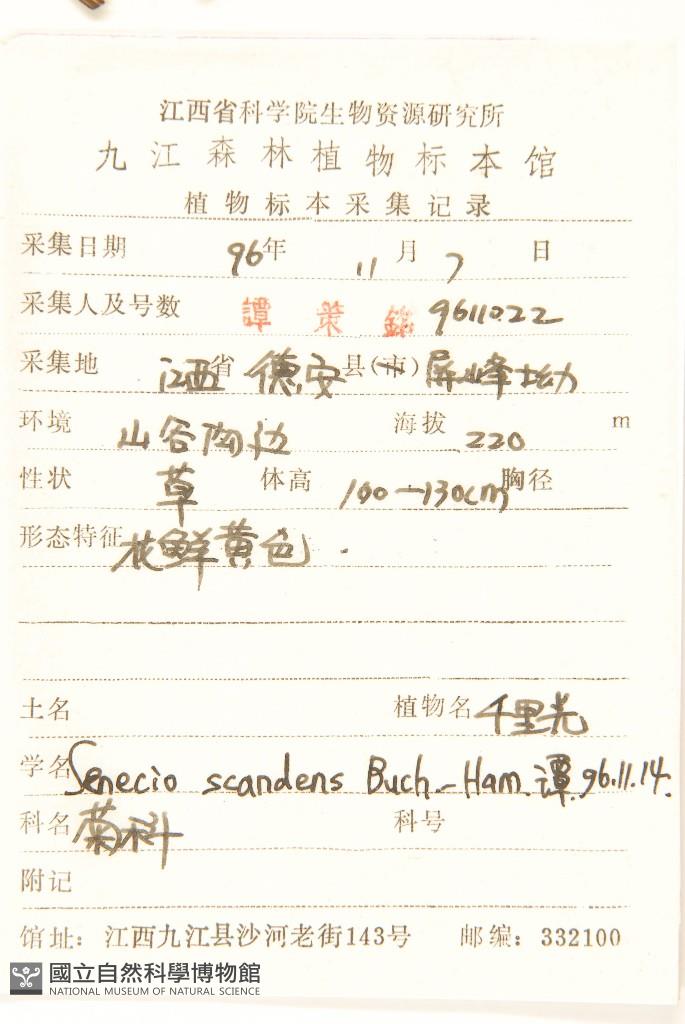 江西省科学院生物资源研究所
九江森林植物标本馆
植物标本采集记录
采集日期 96年 11月 7日
采集人及号数 譚策銘 9611022
采集地 江西省 德安县(市) 屏峰坳
环境 山谷沟边 海拔 220 m
性状 草 体高 100-130cm 胸径
形态特征 花鲜黄色.
土名 植物名 千里光
学名 Senecio scandens Buch.-Ham. 谭 96.11.14.
科名 菊科 科号
附记
馆址：江西九江县沙河老街143号 邮编：332100
國立自然科學博物館
NATIONAL MUSEUM OF NATURAL SCIENCE